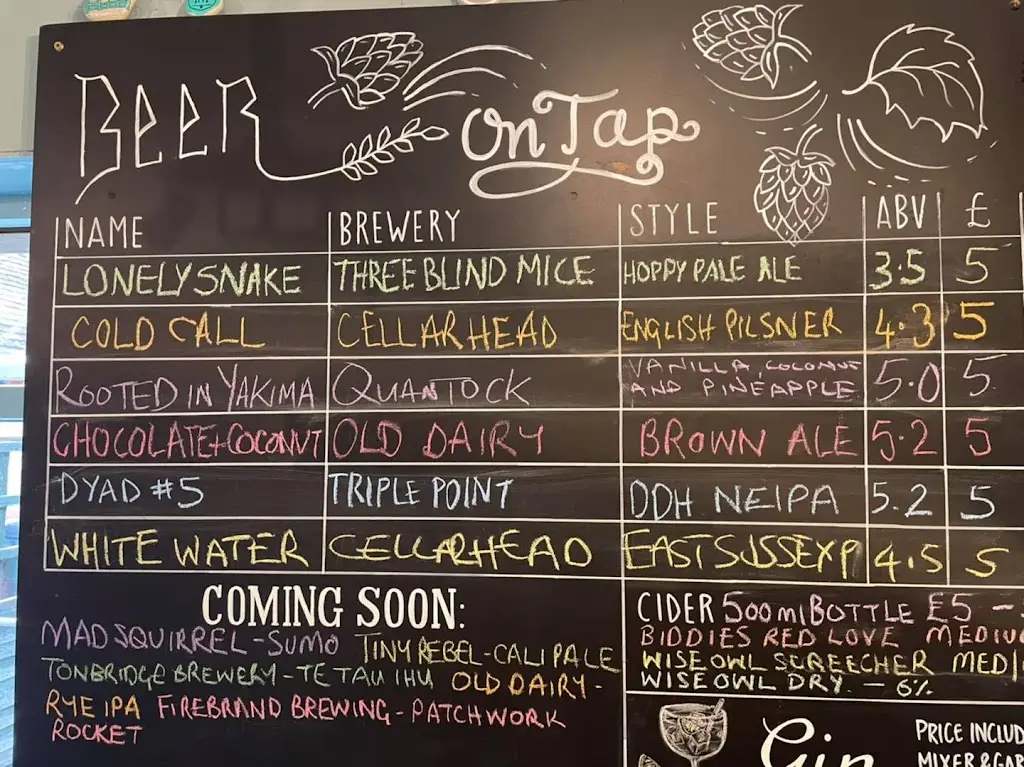 BEER on Tap
NAME BREWERY STYLE ABV £
LONELY SNAKE THREE BLIND MICE HOPPY PALE ALE 3.5 5
COLD CALL CELLARHEAD ENGLISH PILSNER 4.3 5
ROOTED IN YAKIMA QUANTOCK VANILLA, COCONUT AND PINEAPPLE 5.0 5
CHOCOLATE+COCONUT OLD DAIRY BROWN ALE 5.2 5
DYAD #5 TRIPLE POINT DDH NEIPA 5.2 5
WHITE WATER CELLARHEAD EAST SUSSEX P 4.5 5
COMING SOON:
MAD SQUIRREL - SUMO TINY REBEL - CALI PALE
TONBRIDGE BREWERY - TE TAU IHU OLD DAIRY -
RYE IPA FIREBRAND BREWING - PATCHWORK
ROCKET
CIDER 500ml BOTTLE £5 -
BIDDIES RED LOVE MEDIU
WISE OWL SCREECHER MEDI
WISE OWL DRY. - 6%
Gin
PRICE INCLUD
MIXER & GAR